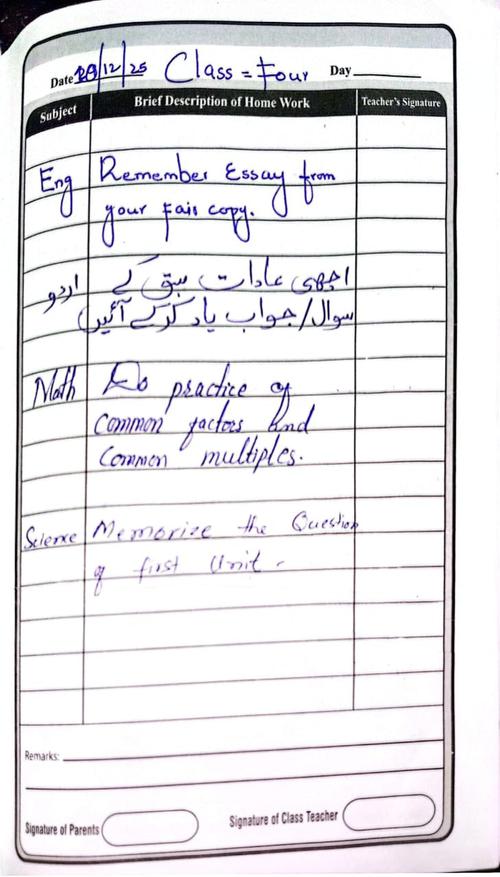 Date 29/12/25 Class = Four Day
Subject Brief Description of Home Work Teacher's Signature
Eng Remember Essay from
your Fair copy.
اردو اچھی عادات سبق کے
سوال/جواب یاد کرکے آئیں
Math Do practice of
common factors and
common multiples.
Science Memorize the Question
of first Unit.
Remarks:
Signature of Parents Signature of Class Teacher